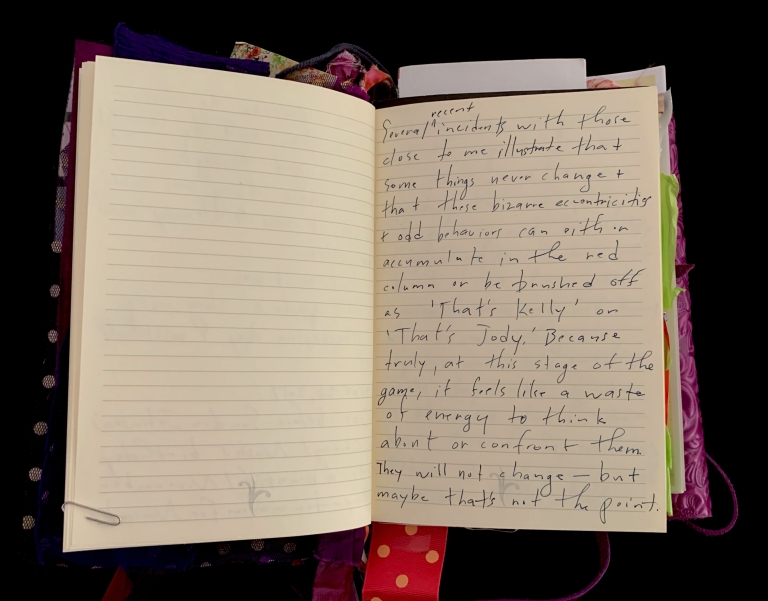 Several recent incidents with those
close to me illustrate that
some things never change +
that these bizarre eccentricities
+ odd behaviors can either
accumulate in the red
column or be brushed off
as 'That's Kelly' or
'That's Jody.' Because
truly, at this stage of the
game, it feels like a waste
of energy to think
about or confront them.
They will not change — but
maybe that's not the point.